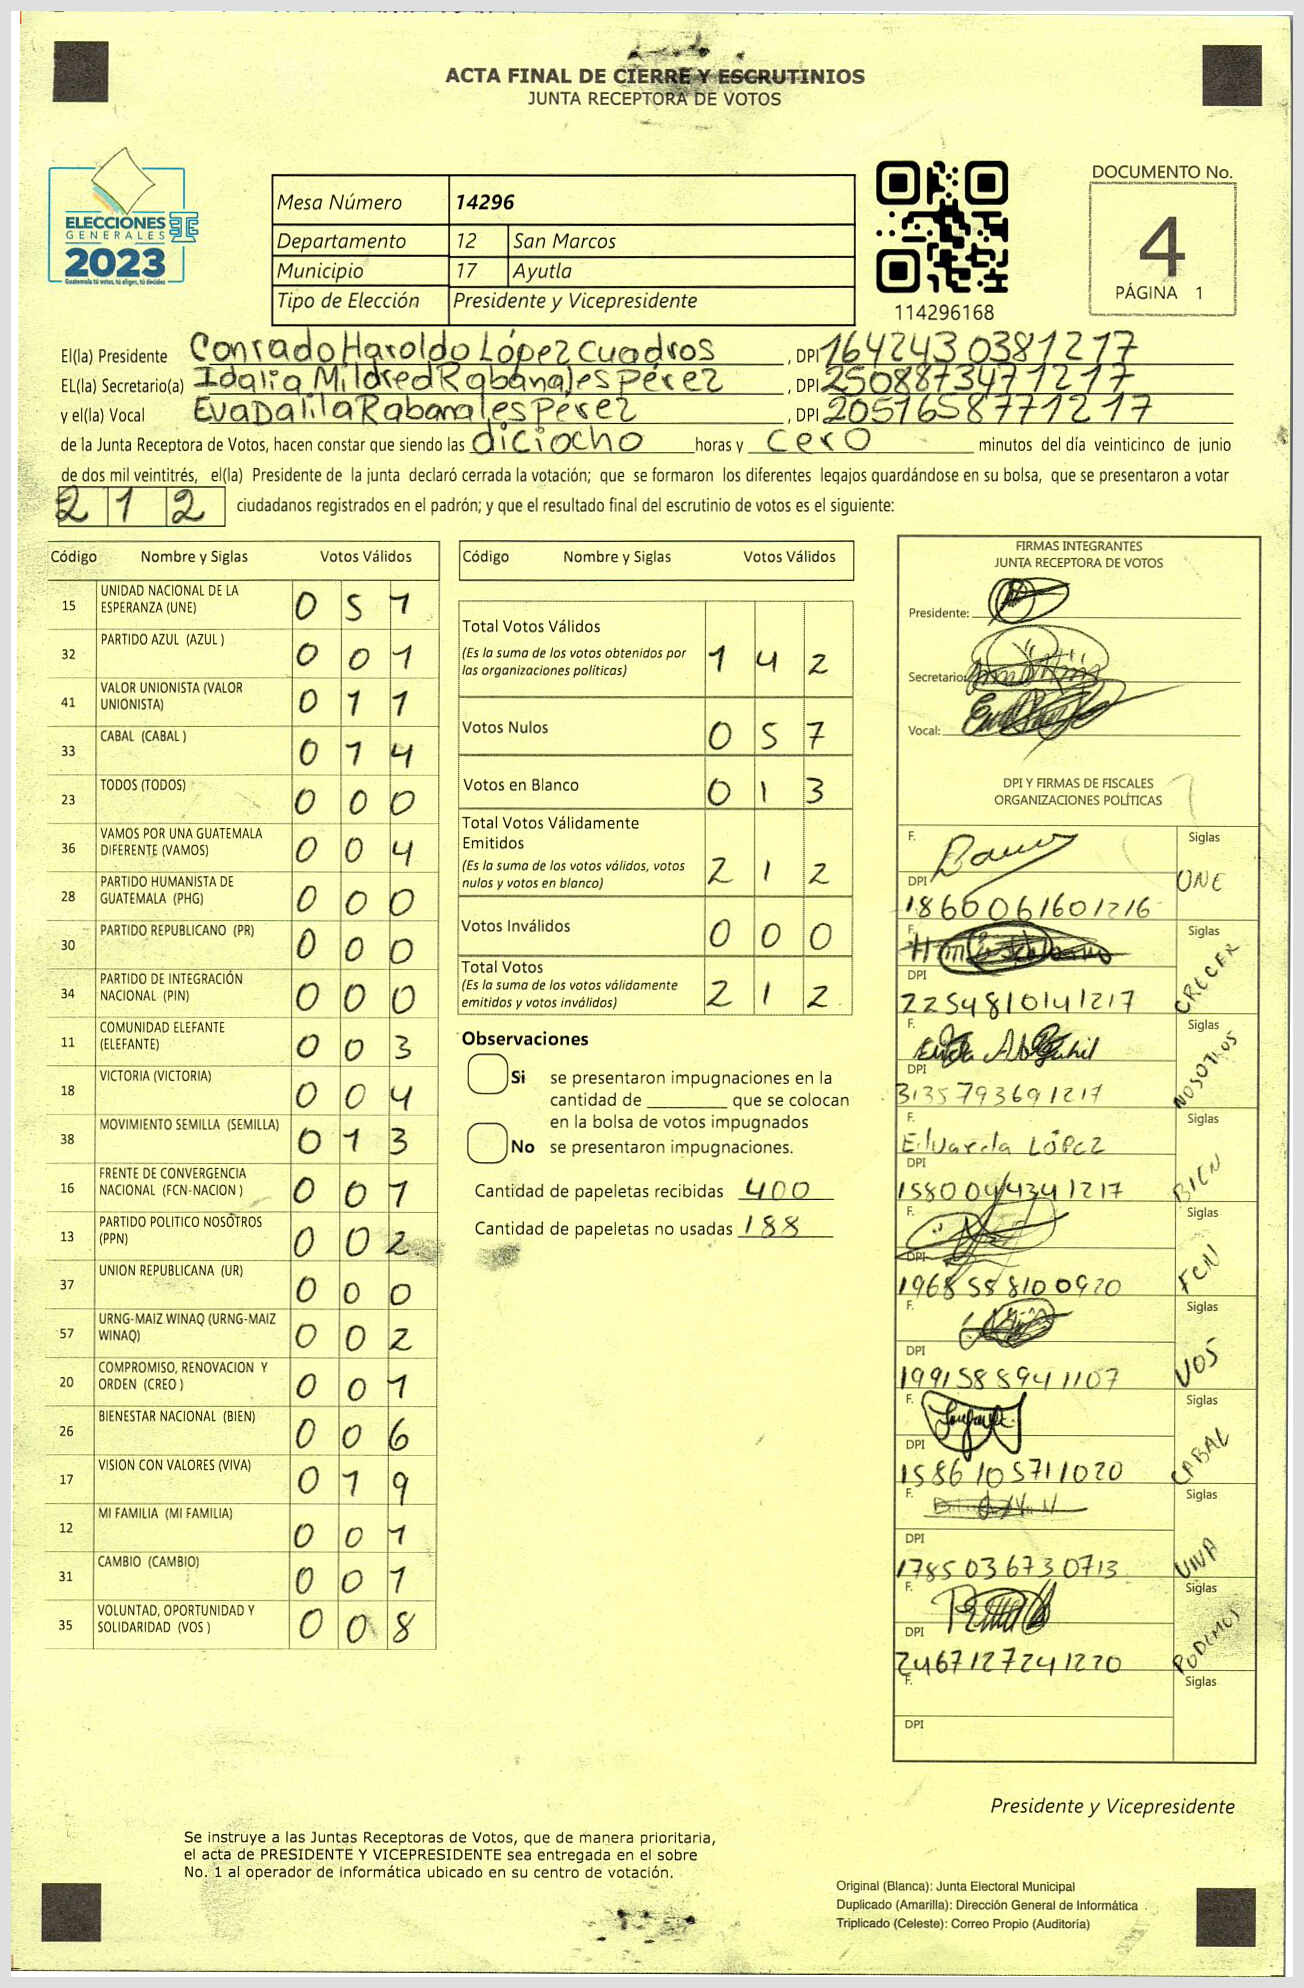 ACTA FINAL DE CIERRE Y ESCRUTINIOS
JUNTA RECEPTORA DE VOTOS
ELECCIONES
GENERALES
2023
Guatemala tú votas, tú eliges, tú decides
Mesa Número 14296
Departamento 12 San Marcos
Municipio 17 Ayutla
Tipo de Elección Presidente y Vicepresidente
114296168
DOCUMENTO No.
4
PÁGINA 1
El(la) Presidente Conrado Haroldo López Cuadros , DPI 1642430381217
EL(la) Secretario(a) Idalia Mildred Rabanales Pérez , DPI 2508873471217
y el(la) Vocal Eva Dalila Rabanales Pérez , DPI 2051658771217
de la Junta Receptora de Votos, hacen constar que siendo las diciocho horas y cero minutos del día veinticinco de junio
de dos mil veintitrés, el(la) Presidente de la junta declaró cerrada la votación; que se formaron los diferentes legajos guardándose en su bolsa, que se presentaron a votar
212 ciudadanos registrados en el padrón; y que el resultado final del escrutinio de votos es el siguiente:
Código Nombre y Siglas Votos Válidos
15 UNIDAD NACIONAL DE LA ESPERANZA (UNE) 0 5 1
32 PARTIDO AZUL (AZUL ) 0 0 1
41 VALOR UNIONISTA (VALOR UNIONISTA) 0 1 1
33 CABAL (CABAL ) 0 1 4
23 TODOS (TODOS) 0 0 0
36 VAMOS POR UNA GUATEMALA DIFERENTE (VAMOS) 0 0 4
28 PARTIDO HUMANISTA DE GUATEMALA (PHG) 0 0 0
30 PARTIDO REPUBLICANO (PR) 0 0 0
34 PARTIDO DE INTEGRACIÓN NACIONAL (PIN) 0 0 0
11 COMUNIDAD ELEFANTE (ELEFANTE) 0 0 3
18 VICTORIA (VICTORIA) 0 0 4
38 MOVIMIENTO SEMILLA (SEMILLA) 0 1 3
16 FRENTE DE CONVERGENCIA NACIONAL (FCN-NACION ) 0 0 1
13 PARTIDO POLITICO NOSOTROS (PPN) 0 0 2
37 UNION REPUBLICANA (UR) 0 0 0
57 URNG-MAIZ WINAQ (URNG-MAIZ WINAQ) 0 0 2
20 COMPROMISO, RENOVACION Y ORDEN (CREO ) 0 0 1
26 BIENESTAR NACIONAL (BIEN) 0 0 6
17 VISION CON VALORES (VIVA) 0 1 9
12 MI FAMILIA (MI FAMILIA) 0 0 1
31 CAMBIO (CAMBIO) 0 0 1
35 VOLUNTAD, OPORTUNIDAD Y SOLIDARIDAD (VOS ) 0 0 8
Código Nombre y Siglas Votos Válidos
Total Votos Válidos 1 4 2
(Es la suma de los votos obtenidos por
las organizaciones políticas)
Votos Nulos 0 5 7
Votos en Blanco 0 1 3
Total Votos Válidamente
Emitidos 2 1 2
(Es la suma de los votos válidos, votos
nulos y votos en blanco)
Votos Inválidos 0 0 0
Total Votos 2 1 2
(Es la suma de los votos válidamente
emitidos y votos inválidos)
Observaciones
Si se presentaron impugnaciones en la
cantidad de ________ que se colocan
en la bolsa de votos impugnados
No se presentaron impugnaciones.
Cantidad de papeletas recibidas 400
Cantidad de papeletas no usadas 188
FIRMAS INTEGRANTES
JUNTA RECEPTORA DE VOTOS
Presidente:
Secretario:
Vocal:
DPI Y FIRMAS DE FISCALES
ORGANIZACIONES POLÍTICAS
F. Siglas
DPI UNE
1860061601216
F. Siglas
DPI CRECER
2254810141217
F. Siglas
DPI NOSOTROS
3135793691217
F. Eduarda LÓPEZ Siglas
DPI BIEN
1580044341217
F. Siglas
DPI FCN
1968588100920
F. Siglas
DPI VOS
1991588941107
F. Siglas
DPI CABAL
1586105711020
F. Siglas
DPI VIVA
1785036730713
F. Siglas
DPI PODEMOS
2467127241220
F. Siglas
DPI
Presidente y Vicepresidente
Se instruye a las Juntas Receptoras de Votos, que de manera prioritaria,
el acta de PRESIDENTE Y VICEPRESIDENTE sea entregada en el sobre
No. 1 al operador de informática ubicado en su centro de votación.
Original (Blanca): Junta Electoral Municipal
Duplicado (Amarilla): Dirección General de Informática
Triplicado (Celeste): Correo Propio (Auditoría)